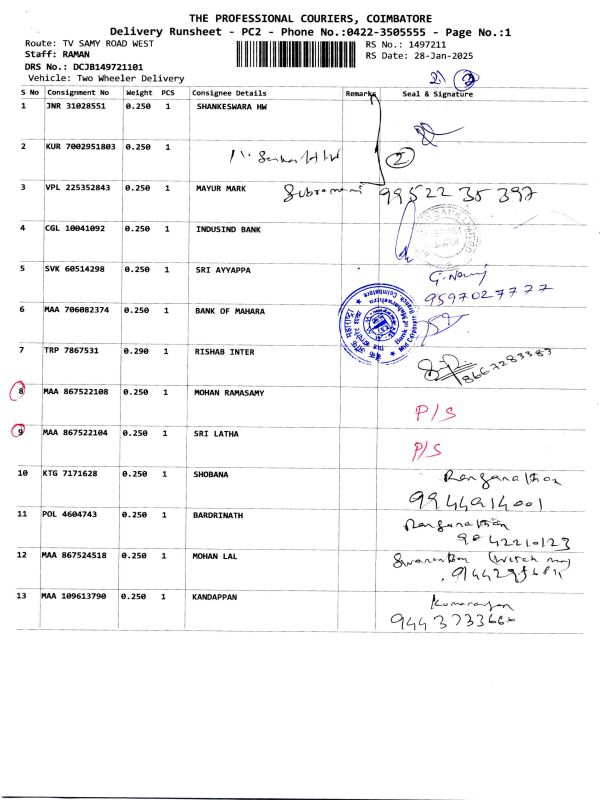 THE PROFESSIONAL COURIERS, COIMBATORE
Delivery Runsheet - PC2 - Phone No.:0422-3505555 - Page No.:1
Route: TV SAMY ROAD WEST
RS No.: 1497211
Staff: RAMAN
RS Date: 28-Jan-2025
DRS No.: DCJB149721101
Vehicle: Two Wheeler Delivery
S No Consignment No Weight PCS Consignee Details Remarks Seal & Signature
1 JNR 31028551 0.250 1 SHANKESWARA HW
2 KUR 7002951803 0.250 1
2
3 VPL 225352843 0.250 1 MAYUR MARK Subramani 99522 35 397
4 CGL 10041092 0.250 1 INDUSIND BANK
5 SVK 60514298 0.250 1 SRI AYYAPPA
9597027777
6 MAA 706082374 0.250 1 BANK OF MAHARA
7 TRP 7867531 0.290 1 RISHAB INTER
8667283383
8 MAA 867522108 0.250 1 MOHAN RAMASAMY
P/S
9 MAA 867522104 0.250 1 SRI LATHA
P/S
10 KTG 7171628 0.250 1 SHOBANA Ranganathan
9944914001
11 POL 4604743 0.250 1 BARDRINATH Ranganathan
9042210123
12 MAA 867524518 0.250 1 MOHAN LAL
13 MAA 109613790 0.250 1 KANDAPPAN
9443733666